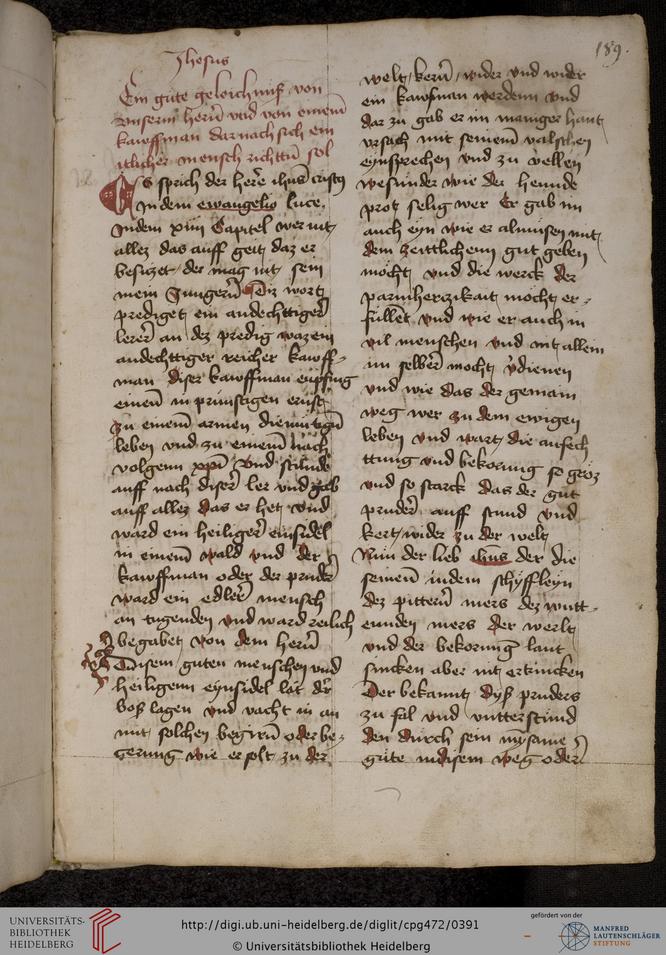 Jhesus
Ein gute geleichniß von
vnserm herñ vnd von einem
kauffman darnach sich ein
itlicher mensch richttñ sol
Es sprich der here ihus cristg
In dem ewangelio luce.
Indem xiiii Capitel wer nit
allez das auff geit daz er
besiczet der mag nit sein
mein Jungerñ Diz wort
prediget ein andechttiger
lerer an dez predig waz ein
andechttiger reicher kawff-
man diser kawffman enpfing
einem in prunstigen ernst
zu einem armen diemuttigñ
leben vnd zu einem nach
volgenn xpi Vnd stunde
auff nach diser ler vnd gab
auff allez das er het vnd
ward ein heiliger einsidel
in einem wald vnd der
kawffman oder der pruder
ward ein edler mensch
an tugenden vnd ward reilich
begabet von dem herñ
Disem guten menschen vnd
heiligenn eynsidel lat dr
boß lagen vnd vacht in an
mit solchen begirñ oder be-
gerung wie er solt zu der
189.
welt kerñ wider vnd wider
ein kawfman werdenn vnd
dar zu gab er im manger hant
vrsach mit seinem valschen
eynsprechen vnd zu vellen
wesunder wie der hennde
prot selig wer Er gab im
auch eyn wie er almusen mit
dem zeittlichenn gut geben
mocht vnd die werck der
parmherczikait mocht er-
fullet vnd wie er auch in
vil menschen vnd nit allein
im selber mocht v̇dienen
vnd wie das der gemain
weg wer zu dem ewigen
leben vnd wart die anfech
ttung vnd bekorung so groz
vnd so starck das der gut
pruder auff stund vnd
kert wider zu der welt
Nun der lieb ihus der die
seinem indem schyffleyn
dez pitterñ mers dez wutt-
eunden mers der werlt
vnd der bekorung laut
sincken aber nit ertrincken
Der bekannt dyß pruders
zu fal vnd vntterstund
den durch sein mysame
gute in disem weg oder
UNIVERSITÄTS-
BIBLIOTHEK
HEIDELBERG
http://digi.ub.uni-heidelberg.de/diglit/cpg472/0391
© Universitätsbibliothek Heidelberg
gefördert von der
MANFRED
LAUTENSCHLÄGER
STIFTUNG